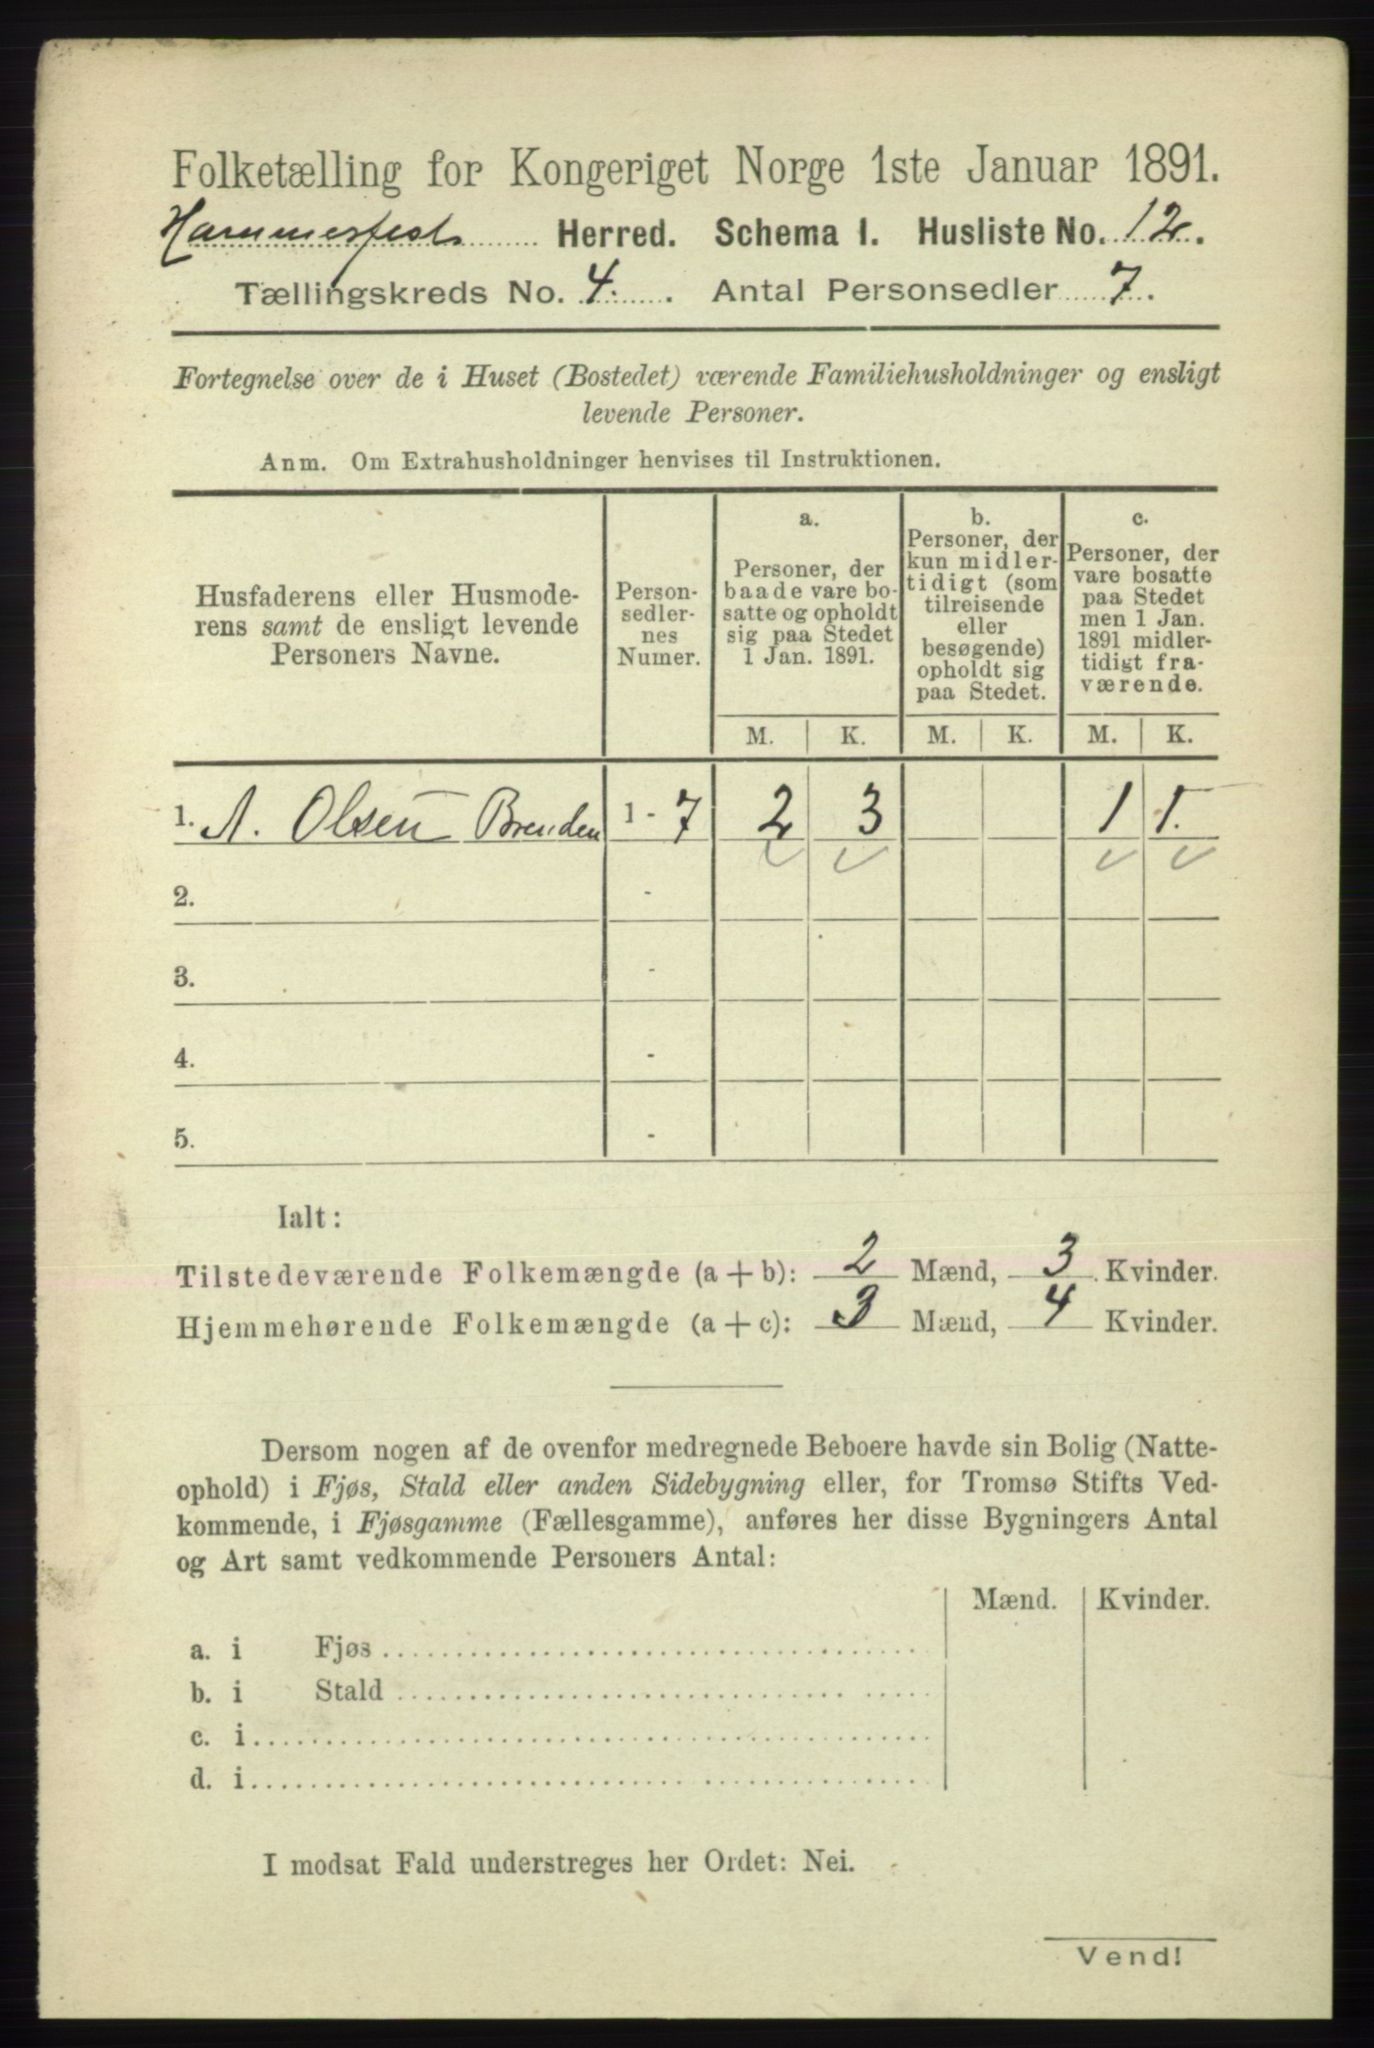 Folketælling for Kongeriget Norge 1ste Januar 1891.
Hammerfest Herred. Schema I. Husliste No. 12.
Tællingskreds No. 4. Antal Personsedler 7.
Fortegnelse over de i Huset (Bostedet) værende Familiehusholdninger og ensligt
levende Personer.
Anm. Om Extrahusholdninger henvises til Instruktionen.
Husfaderens eller Husmode-
rens samt de ensligt levende
Personers Navne.
Person-
sedler-
nes
Numer.
a.
Personer, der
baade vare bo-
satte og opholdt
sig paa Stedet
1 Jan. 1891.
b.
Personer, der
kun midler-
tidigt (som
tilreisende
eller
besøgende)
opholdt sig
paa Stedet.
c.
Personer, der
vare bosatte
paa Stedet
men 1 Jan.
1891 midler-
tidigt fra-
værende.
M. K. M. K. M. K.
1. A. Olsen Brenden 1 - 7 2 3 1 1.
2. -
3. -
4. -
5. -
Ialt:
Tilstedeværende Folkemængde (a + b): 2 Mænd, 3 Kvinder.
Hjemmehørende Folkemængde (a + c): 3 Mænd, 4 Kvinder.
Dersom nogen af de ovenfor medregnede Beboere havde sin Bolig (Natte-
ophold) i Fjøs, Stald eller anden Sidebygning eller, for Tromsø Stifts Ved-
kommende, i Fjøsgamme (Fællesgamme), anføres her disse Bygningers Antal
og Art samt vedkommende Personers Antal:
Mænd. Kvinder.
a. i Fjøs
b. i Stald
c. i
d. i
I modsat Fald understreges her Ordet: Nei.
Vend!